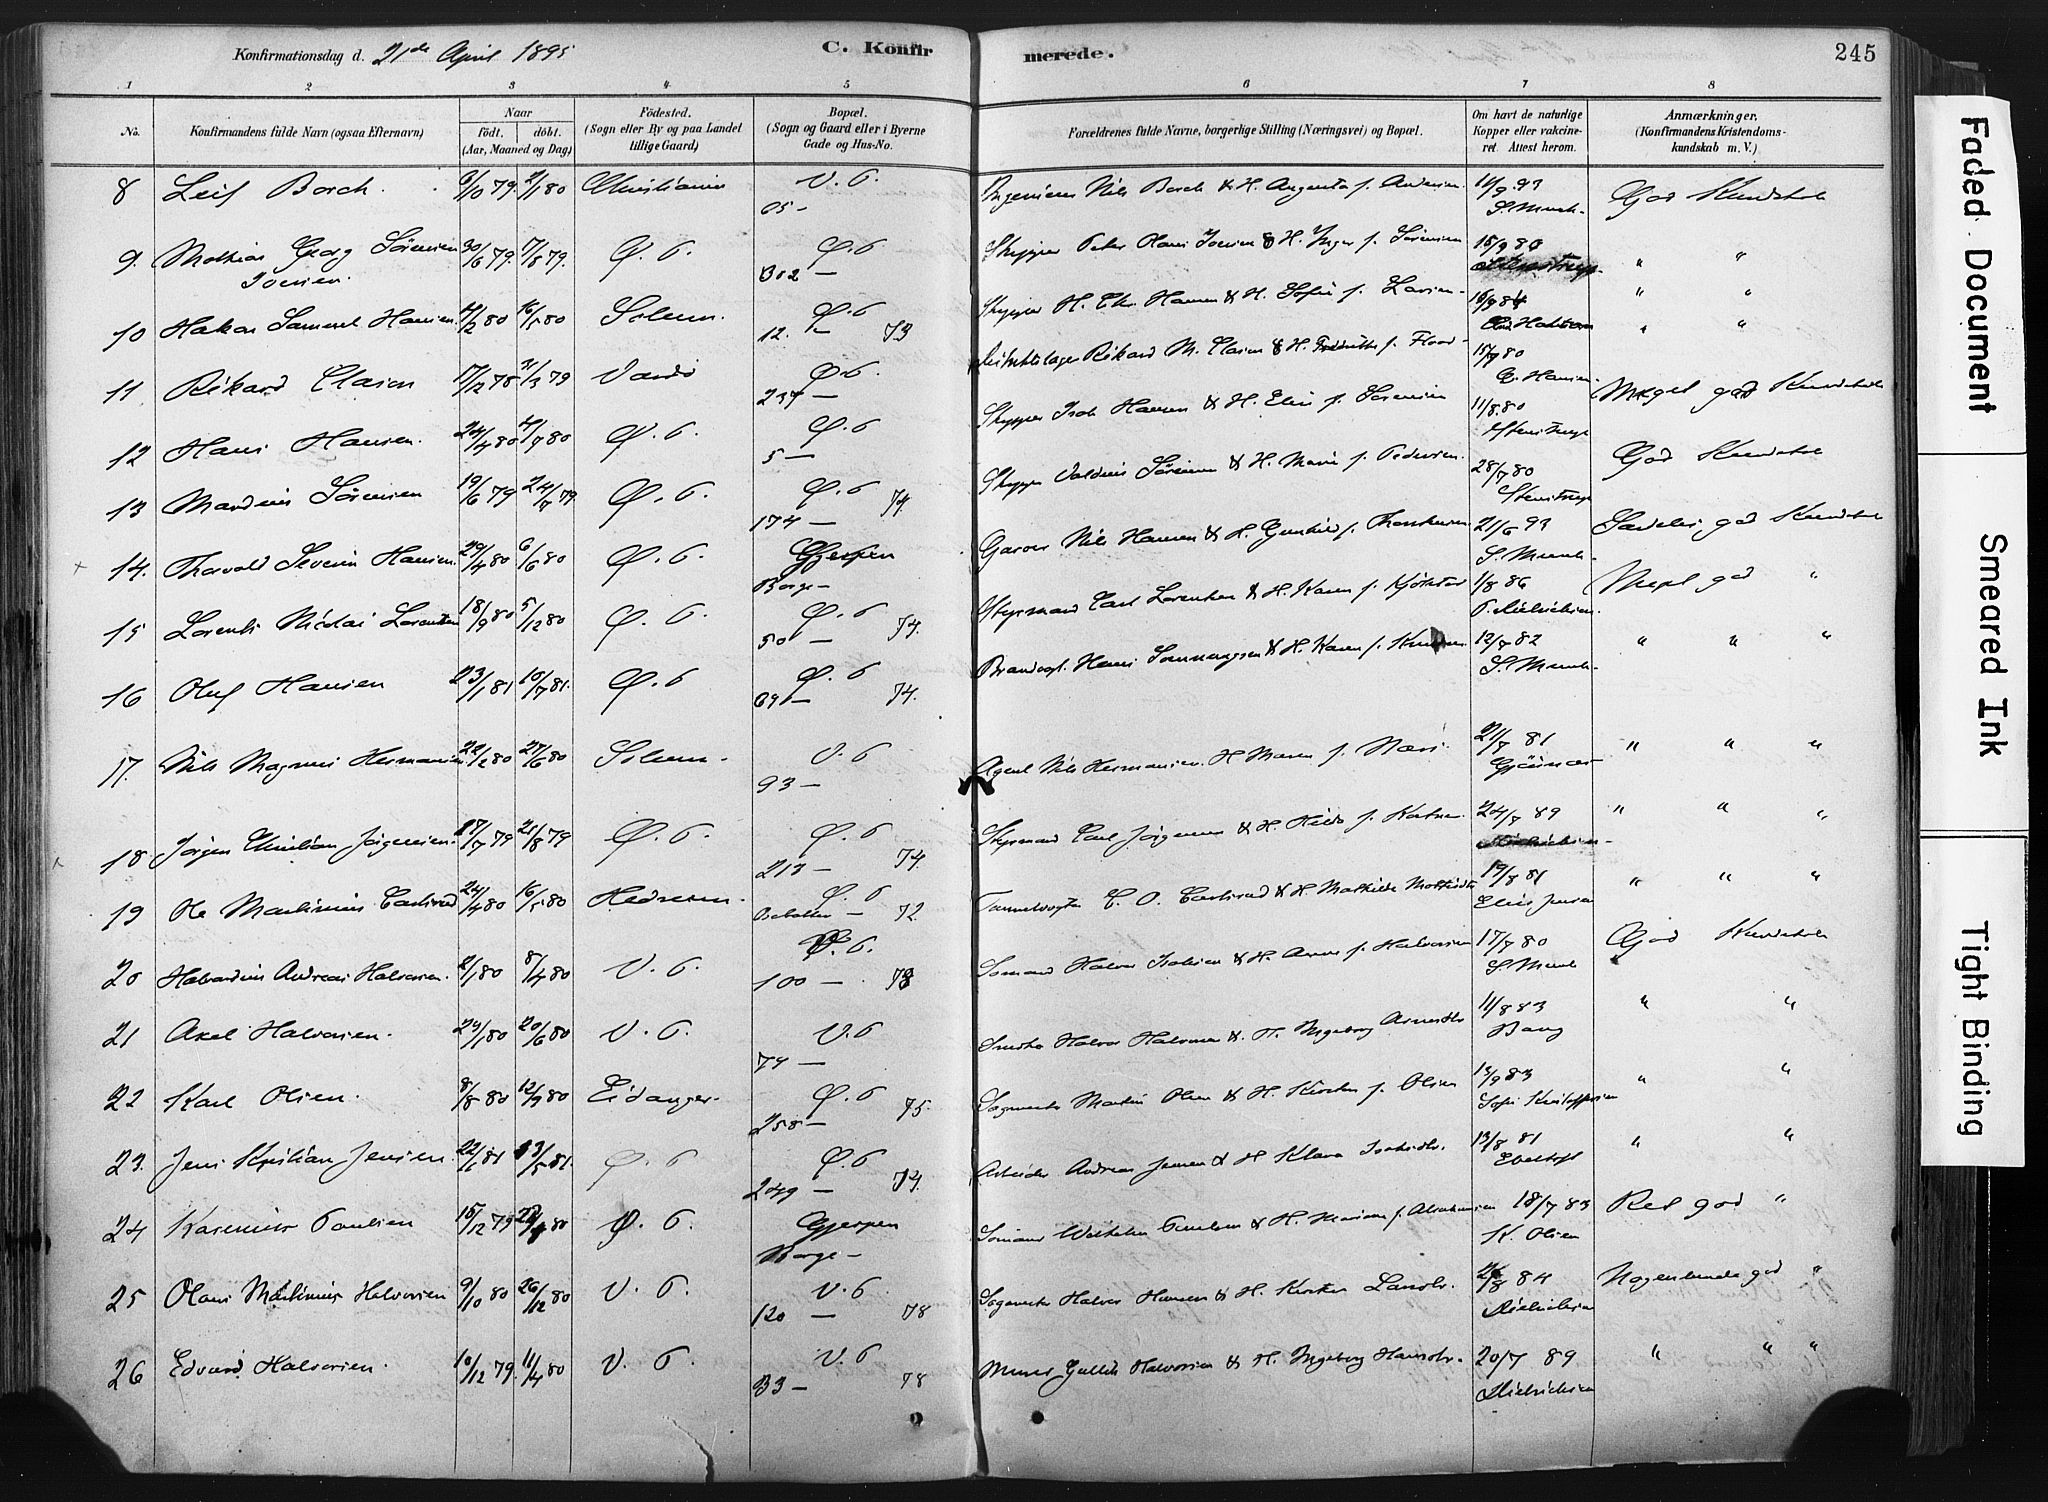 Konfirmationsdag d. 21de April 1895
C. Konfirmerede.
245
1 2 3 4 5 6 7 8
No.
Konfirmandens fulde Navn (ogsaa Efternavn)
Naar
født. døbt.
(Aar, Maaned og Dag)
Fødested.
(Sogn eller By og paa Landet
tillige Gaard)
Bopæl.
(Sogn og Gaard eller i Byerne
Gade og Hus-No.
Forældrenes fulde Navne, borgerlige Stilling (Næringsvei) og Bopæl.
Om havt de naturlige
Kopper eller vakcine-
ret. Attest herom.
Anmærkninger.
(Konfirmandens Kristendoms-
kundskab m. V.)
8 Leif Borch. 6/10 79. 2/1 80 Christiania V. P. 05 - Ingeniør Nils Borch & H. Augusta f. Andersen. 14/9 93 S. Munk. God Kundskab
9. Mathias Georg Sörensen Iversen. 30/6 79. 17/8 79. Ø. P. Ø. P 302 - Skipper Peter Hans Iversen & H. Inger f. Sörensen 15/9 80 Stenstrup. " "
10 Hakon Samuel Hansen. 4/2 80 16/5 80 Solum. Ø. P 12. - 73 Skipper H. Chr. Hansen & H. Sofie f. Larsen. 16/9 84 " "
11 Rikard Clasen 17/12 78 21/3 79 Vardö Ø. P. 237 - Rikard M. Clasen & H. f. Flood. 15/9 80 E. Hansen. " "
12 Hans Hansen. 24/4 80 4/7 80 Ø. P. Ø. P 5 - Skipper Isak Hansen & H. Elen f. Sörensen 11/8. 80 Stenstrup Meget god Kundskab
13 Mardius Sörensen 19/6 79 24/7 79 Ø. P. Ø. P 174 - 74 Skipper Valdius Sörensen & H. Maren f. Pedersen. 28/7 80 Stenstrup God Kundskab
14. Thorvald Severin Hansen. 29/4 80 6/6 80 Ø. P. Gjerpen Borge - Garver Nils Hansen & H. Gunhild f. 21/6 93 S. Munk. Særdeles god Kundskab
15 Lorents Nicolai Lorentsen 18/9 80 5/12 80 Ø. P. Ø. P 50 - 74. Styrmand Carl Lorentsen & H. Karen f. 1/8 86 P. Dietrichsen. Meget god "
16 Oluf Hansen 23/1 81 10/7 81. Ø. P Ø. P 69 - 74. Brandvgt. Hans & H. Karen f. Knudsen 12/7 82 S. Munk. " " "
17. Nils Magnus Hermansen 22/2 80 27/6 80 Solum. V. P 93 - Agent Nils Hermansen. H Maren f. Næss. 21/7 81 " " "
18 Jörgen Christian Jörgensen. 17/7 79 21/8 79 Ø. P. Ø. P 213 - 74. Styrmand Carl Jörgensen & H. Hilda f. 24/7 89 Dietrichsen " " "
19 Ole Martinius Carlsrud 24/4 80 16/5 80 Hedrum. Ø. P - 72 C. O. Carlsrud & H. Mathilde 19/8 81 Elise Jensen " " "
20 Halvardius Andreas Halvorsen. 2/1 80 8/4 80 V. P. V. P. 100 - 73 Sömand Halvor Isaksen & H. Anne f. Halvorsen 17/7 80 S. Munk God Kundskab
21 Axel Halvorsen. 29/1 80 20/6 80 V. P. V. P 79 - Halvor Halvorsen & H. Ingeborg 11/8 83 Bang " "
22 Karl Olsen. 8/8 80 12/9 80 Eidanger. Ø. P 258 - 75. Sagmester Martin Olsen & H. Kirsten f. Olsen 13/9 83 Sofie Kristoffersen " "
23. Jens Kristian Jensen. 22/1 81 13/5 81. Ø. P Ø. P 249 - 74. Arbeider Andreas Jensen & H Klara Isaksdtr. 13/8 81 " "
24 Kasimir Paulsen 15/12 79 80 Ø. P. Gjerpen Borge - Sömand Wilhelm Paulsen & H. Mariane f. Abrahamsen 18/7 83 K. Olsen Ret god "
25 Olaus Martinius Halvorsen 9/10 80 26/12 80 V. P. V. P. 120 - 78 Sagmester Halvor Hansen & H. Kirsten Larsdtr. 84 Dietrichsen Nogenlunde god "
26 Edvard Halvorsen. 10/12 79. 11/4 80 V. P. V. P 33 - 78 Murer Gullik Halvorsen & H. Ingeborg Hansdtr. 20/7 89 Dietrichsen " " "
Faded Document
Smeared Ink
Tight Binding